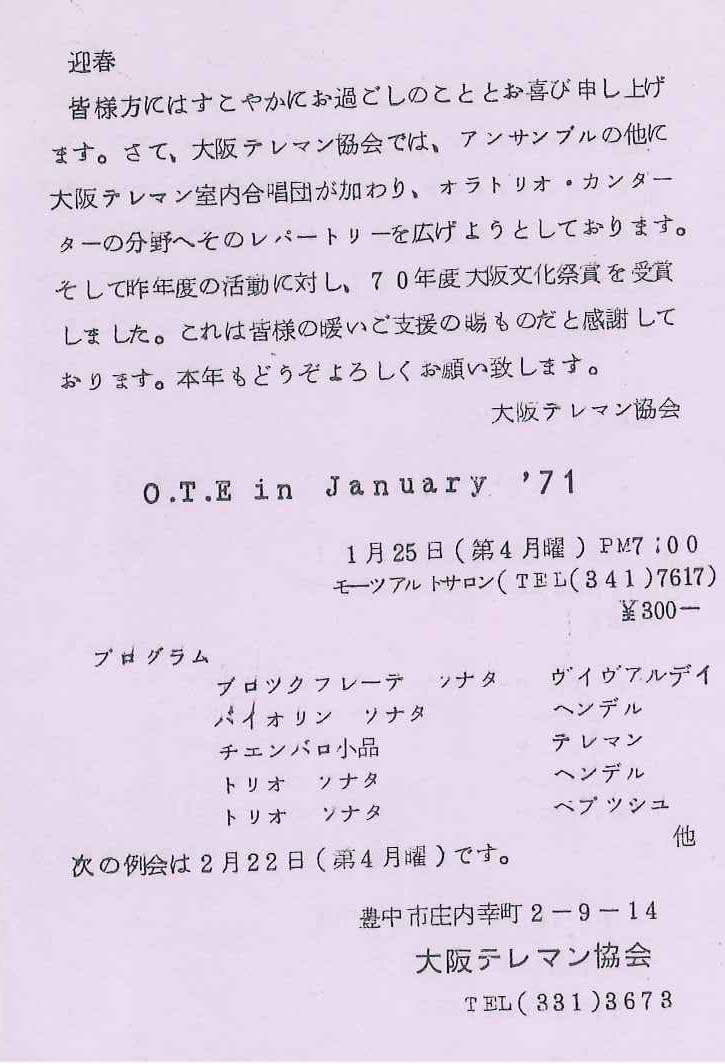 迎春
皆様方にはすこやかにお過ごしのこととお喜び申し上げ
ます。さて、大阪テレマン協会では、アンサンブルの他に
大阪テレマン室内合唱団が加わり、オラトリオ・カンター
ターの分野へそのレパートリーを広げようとしております。
そして昨年度の活動に対し、70年度大阪文化祭賞を受賞
しました。これは皆様の暖いご支援の賜ものだと感謝して
おります。本年もどうぞよろしくお願い致します。
大阪テレマン協会
O.T.E in January '71
1月25日(第4月曜)PM7:00
モーツアルトサロン(TEL(341)7617)
¥300ー
プログラム
ブロツクフレーテ ソナタ ヴイヴアルデイ
バイオリン ソナタ ヘンデル
チエンバロ小品 テレマン
トリオ ソナタ ヘンデル
トリオ ソナタ ペプツシユ
他
次の例会は2月22日(第4月曜)です。
豊中市庄内幸町2-9-14
大阪テレマン協会
TEL(331)3673